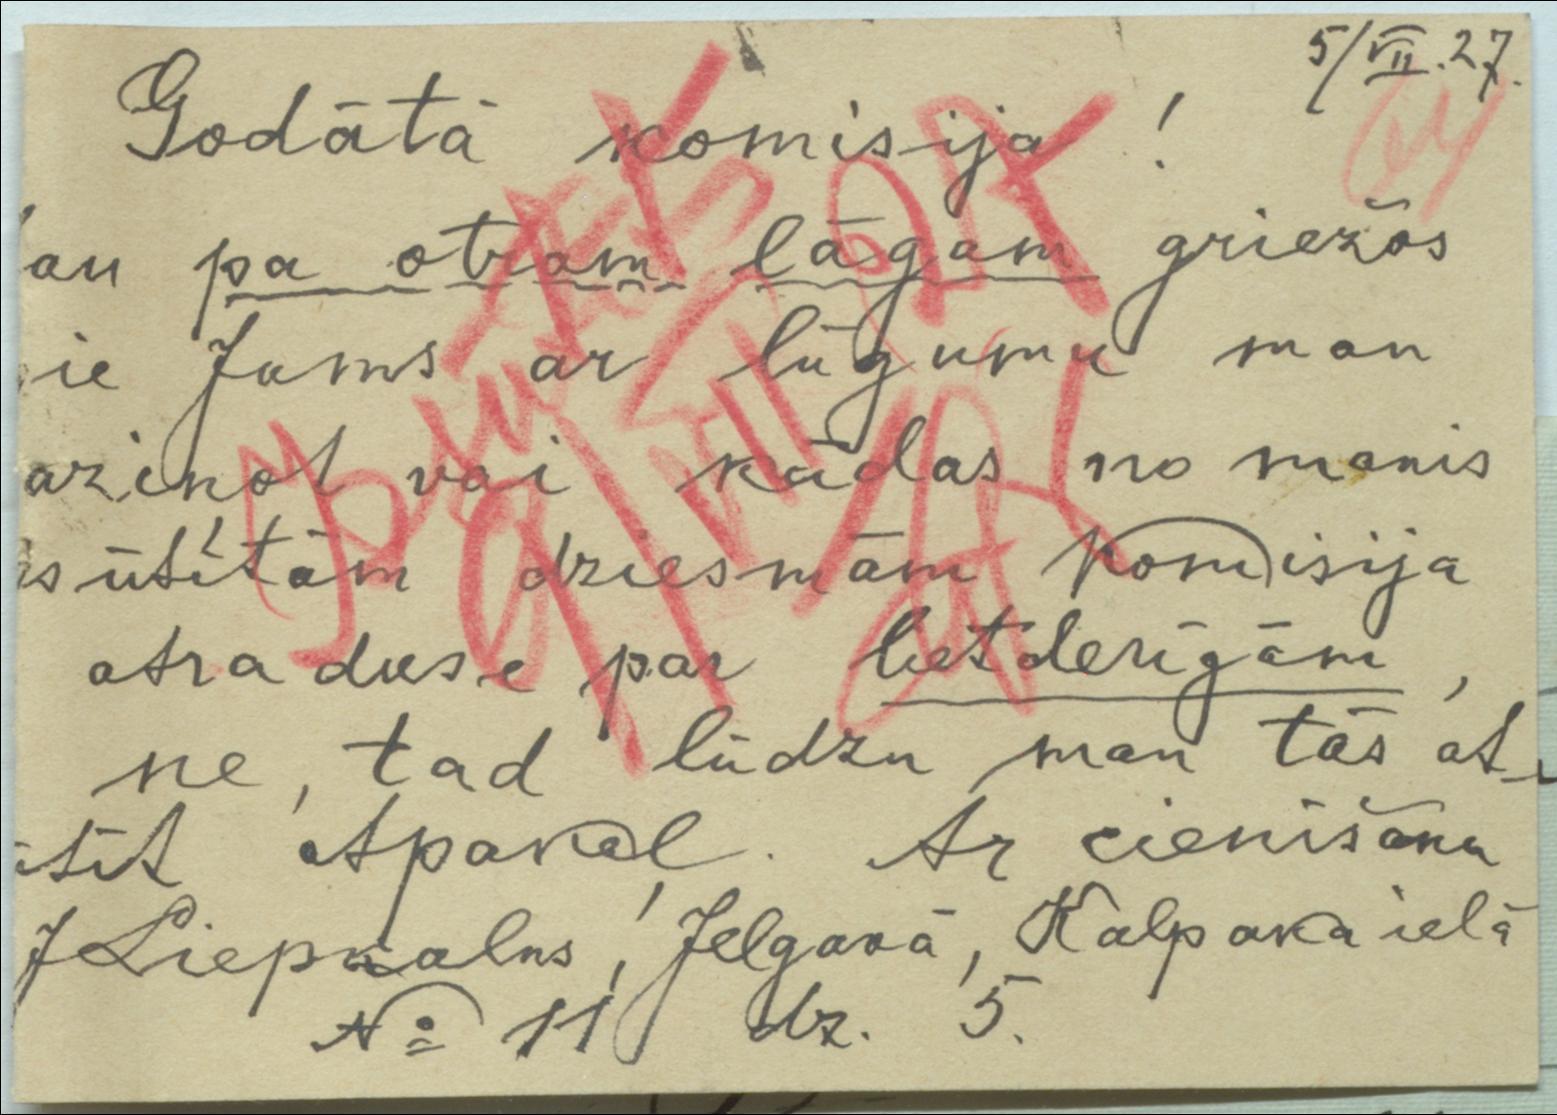 5/VII.27.
Godātā komisija!
au pa otram lāgam griežos
ie Jums ar lūgumu man
azinot vai kādas no manis
sūtītām dziesmām komisija
atraduse par lietderīgām,
ne, tad lūdzu man tās at-
sūtīt atpakaļ. Ar cienīšanu
J Liepkalns, Jelgavā, Kalpaka ielā
№ 11 dz. 5.